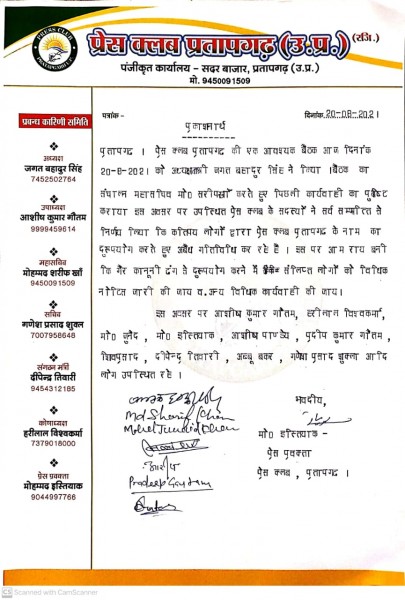 PRESS CLUB
प्रेस क्लब प्रतापगढ़ (उ.प्र.) (रजि.)
पंजीकृत कार्यालय – सदर बाजार, प्रतापगढ़ (उ.प्र.)
मो. 9450091509
प्रबन्ध कारिणी समिति
अध्यक्ष
जगत बहादुर सिंह
7452502764
उपाध्यक्ष
आशीष कुमार गौतम
9999459614
महासचिव
मोहम्मद शरीफ खाँ
9450091509
सचिव
गणेश प्रसाद शुक्ल
7007958648
संगठन मंत्री
दीपेन्द्र तिवारी
9454312185
कोषाध्यक्ष
हरीलाल विश्वकर्मा
7379018000
प्रेस प्रवक्ता
मोहम्मद इस्तियाक
9044997766
पत्रांक -
दिनांक 20-08-2021
प्रकाशनार्थ
प्रतापगढ़ । प्रेस क्लब प्रतापगढ़ की एक आवश्यक बैठक आज दिनांक
20-8-2021 को अध्यक्षता जगत बहादुर सिंह ने किया ।बैठक का
संचालन महासचिव मो0 सरीफखाँ करते हुए पिछली कार्यवाही का पुष्टि
कराया इस अवसर पर उपस्थित प्रेस क्लब के सदस्यों ने सर्व सम्मति से
निर्णय लिया कि कतिपय लोगों द्वारा प्रेस क्लब प्रतापगढ़ के नाम का
दुरूपयोग करते हुए अवैध गतिविधि कर रहे है । इस पर आम राय बनी
कि गैर कानूनी ढंग से दुरूपयोग करने में संलिप्त लोगों को विधिक
नोटिस जारी की जाय व.अन्य विधिक कार्यवाही की जाय।
इस अवसर पर आशीष कुमार गौतम, हरीलाल विश्वकर्मा,
मो0 जुनैद, मो0 इस्तियाक, आशीष पाण्डेय, प्रदीप कुमार गौतम,
शिवप्रसाद, दीपेन्द्र तिवारी, अब्बू बकर, गणेश प्रसाद शुक्ला आदि
लोग उपस्थित रहे ।
Md Sharif Khan
Mohd Junaid Khan
Pradeep Gautam
भवदीय,
मो0 इस्तियाक-
प्रेस प्रवक्ता
प्रेस क्लब, प्रतापगढ़ ।
CS Scanned with CamScanner